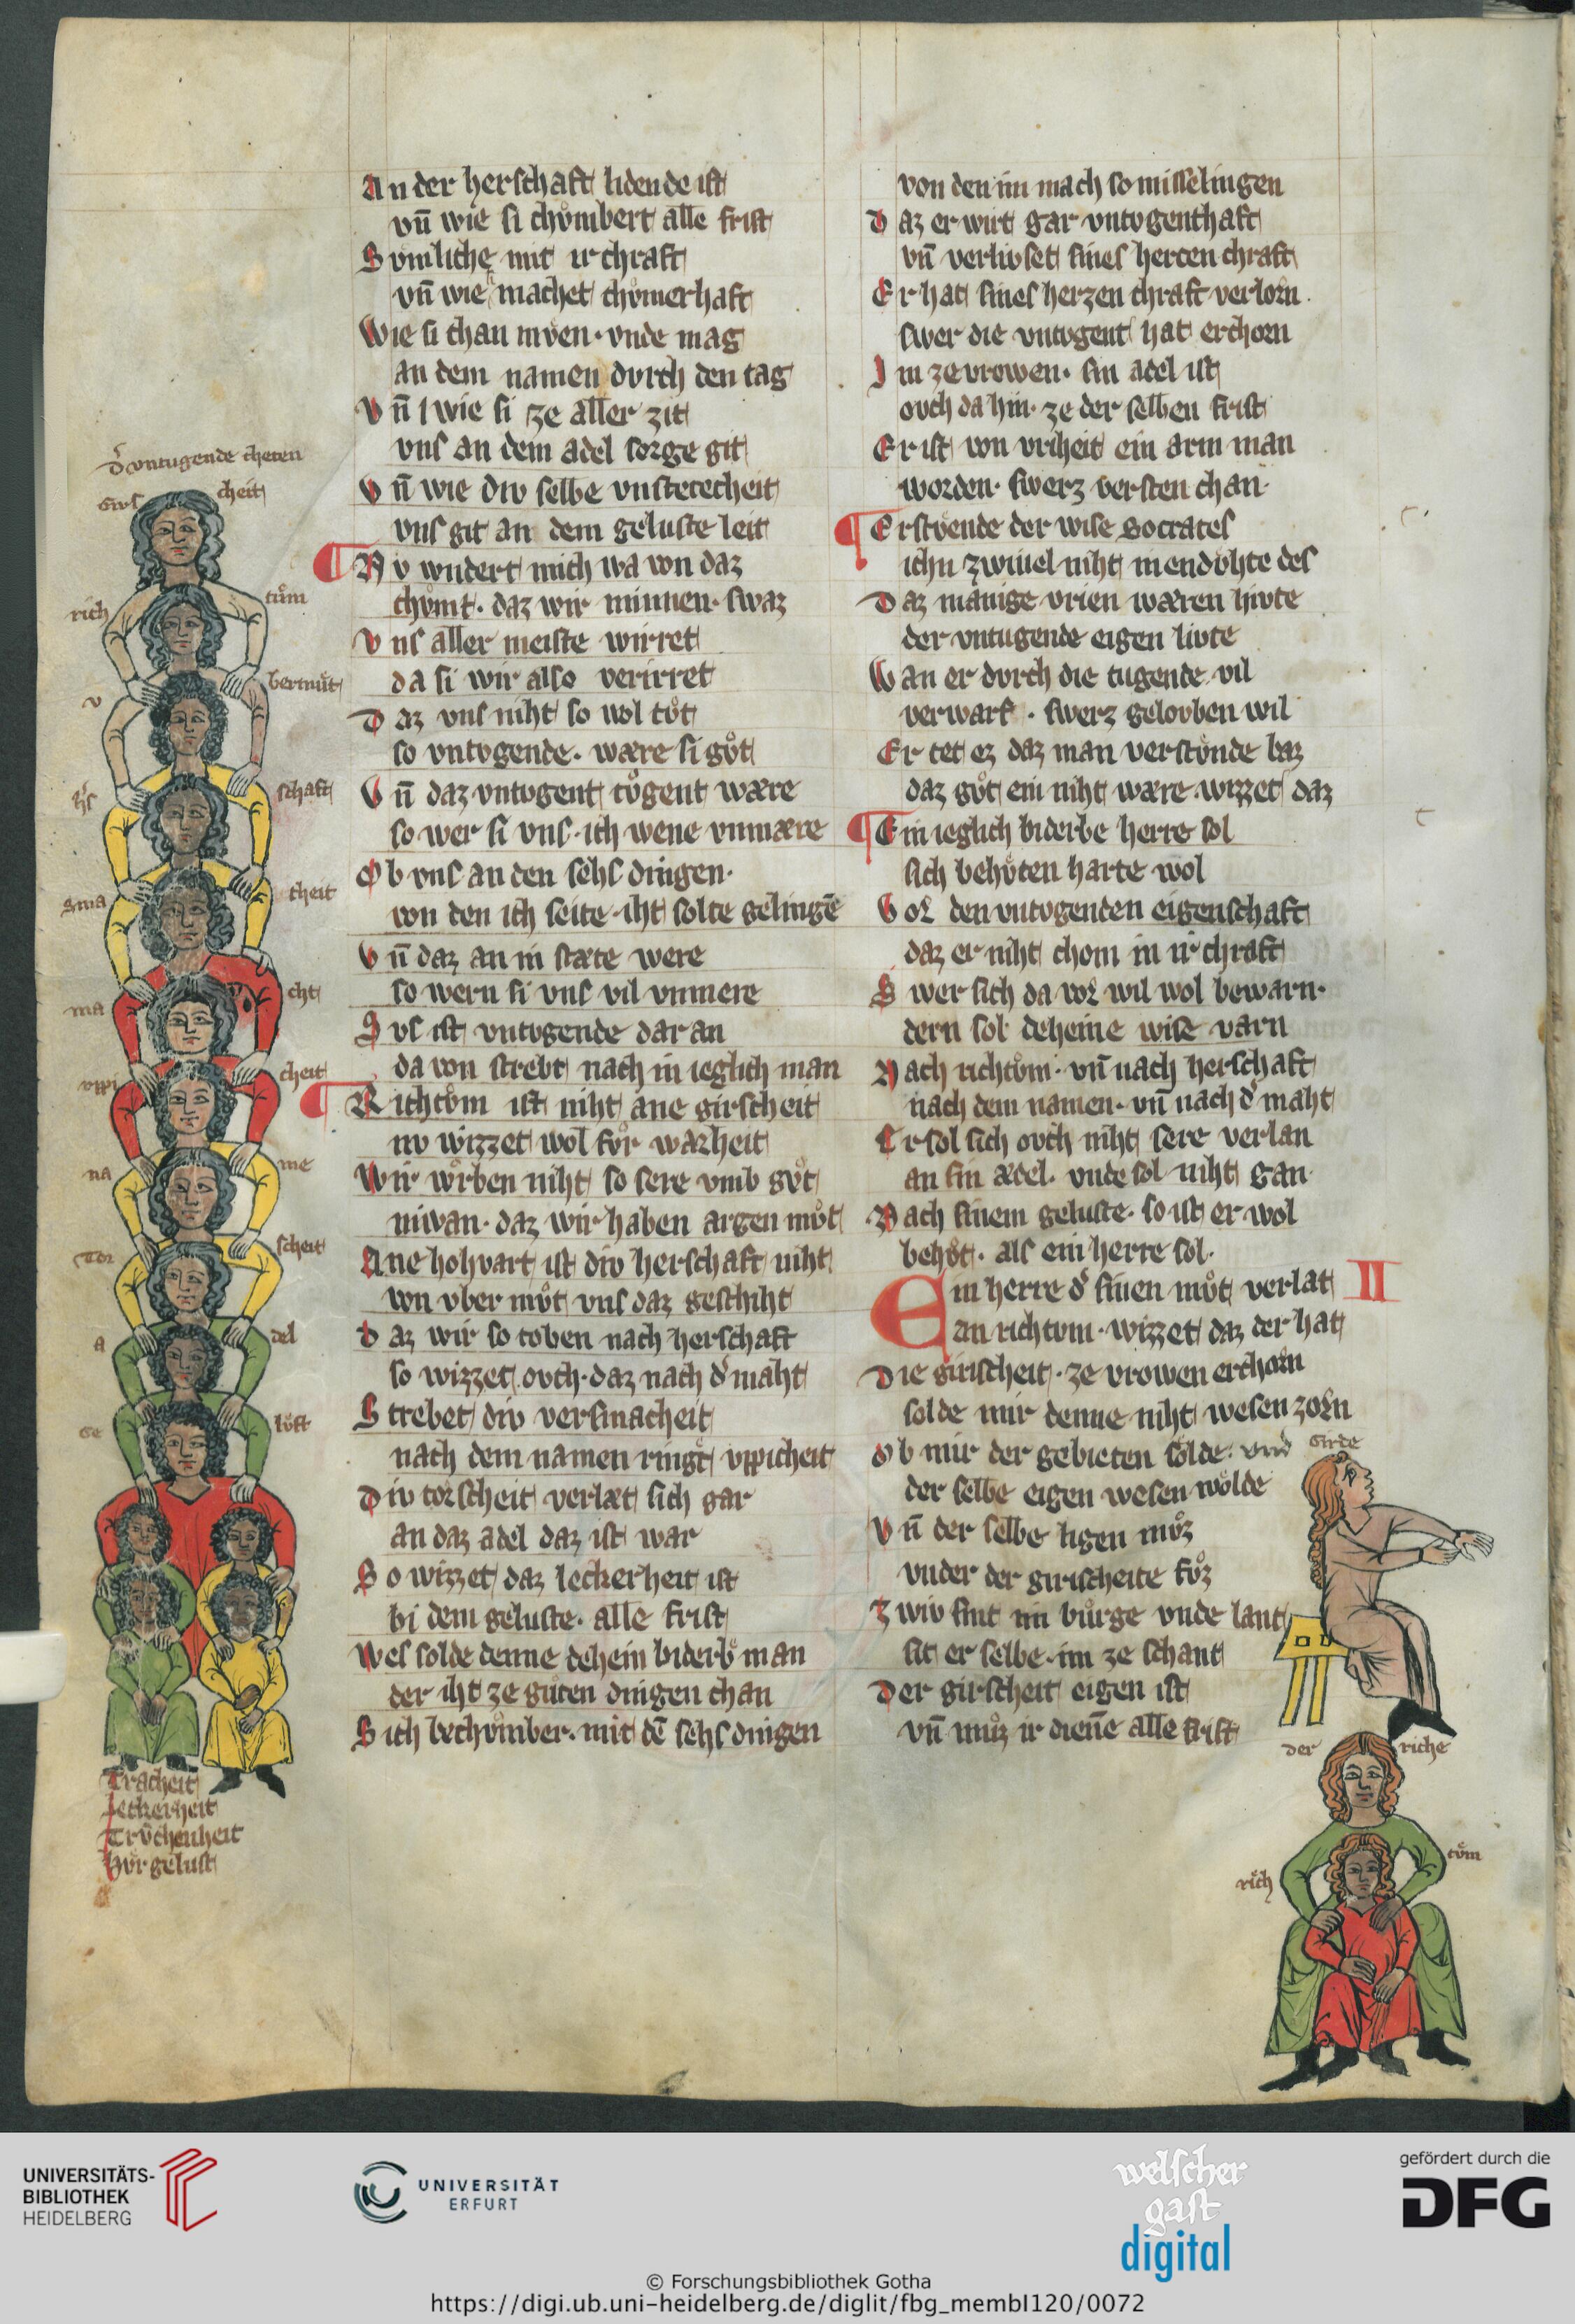 An der herschaft lidende ist
vn̄ wie si chůmbert alle frist
Sumliche mit ir chraft
vn̄ wie machet chůmerhaft
Wie si chan mỏen· vnde mag
an dem namen dvrch den tag
Vn̄ wie si ze aller zit
vns an dem adel sorge git
Vn̄ wie div selbe vnstetecheit
vns git an dem geluste leit
Nv wndert mich wa von daz
chůmt· daz wir minnen· swaz
Vns aller meiste wirret
da si wir also verirret
Daz vns niht so wol tůt
so vntvgende· wære si gůt
Vn̄ daz vntvgent tůgent wære
so wer si vns· ich wene vnmære
Ob vns an den sehs dingen·
von den ich seite· iht solte gelingē
Vn̄ daz an in stæte were
so wern si vns vil vnmere
Svs ist vntvgende dar an
da von strebt nach in ieglich man
Richtům ist niht ane girscheit
nv wizzet wol fůr warheit
Wir wůrben niht so sere vmb gůt
niwan· daz wir haben argen můt
Ane hohvart ist div herschaft niht
von vber můt vns daz geschiht
Daz wir so toben nach herschaft
so wizzet ovch· daz nach d̛ maht
Strebet div versmacheit
nach dem namen ringt vppicheit
Div torscheit verlæt sich gar
an daz adel daz ist war
So wizzet daz leckerheit ist
bi dem geluste· alle frist
Wes solde denne dehein biderb̛ man
der iht ze gůten dingen chan
Sich bechůmber· mit dē sehs dingen
von den im mach so misselingen
Daz er wirt gar vntvgenthaft
vn̄ verlivset sines hercen chraft
Er hat sines herzen chraft verlorn·
swer die vntvgent hat erchorn
Im ze vrowen· sin adel ist
ovch da hin· ze der selben frist
Er ist von vriheit ein arm man
worden· swerz versten chan·
Erstvende der wise Socrates
ichn zwiuel niht in endvhte des
Daz manige vrien wæren hivte
der vntugende eigen livte
Wan er dvrch die tugende vil
verwarf· swerz gelovben wil
Er tet ez daz man verstůnde baz
daz gůt ein niht wære wizzet daz
Ein ieglich biderbe herre sol
sich behůten harte wol
Vor den vntvgenden eigenschaft
daz er niht chom in ir chraft
Swer sich da vor wil wol bewarn·
dern sol deheine wise varn
Nach richtům· vn̄ nach herschaft
nach dem namen· vn̄ nach d̛ maht
Er sol sich ovch niht sere verlan
an sin ædel· vnde sol niht gan·
Nach sinem geluste· so ist er wol
behůt· als ein herre sol·
Ein herre d̛ sinen můt verlat II
an richtvm· wizzet daz der hat
Die girischeit· ze vrowen erchorn
solde mir denne niht wesen zorn
Ob mir der gebieten solde· vnd
der selbe eigen wesen wolde
Vn̄ der selbe ligen můz
vnder der girischeite fůz
Zwiv sint im bůrge vnde lant
sit er selbe· im ze schant
Der girscheit eigen ist
vn̄ můz ir dienē alle frist
d̛ vntugende cheten
Girs cheit
rich tům
v bermůt
h̛s schaft
sma cheit
ma cht
vppi cheit
na me
Tor scheit
a del
ge lůst
Tracheit
Leckerheit
Trůchenheit
Hůrgelust
Girde
der riche
rich tům
UNIVERSITÄTS-
BIBLIOTHEK
HEIDELBERG
UNIVERSITÄT
ERFURT
welscher
gast
digital
gefördert durch die
DFG
© Forschungsbibliothek Gotha
https://digi.ub.uni-heidelberg.de/diglit/fbg_membI120/0072